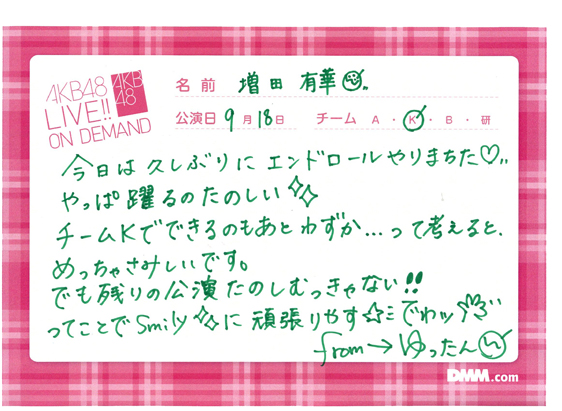 AKB48
LIVE!!
ON DEMAND
AKB
48
名前 増田 有華
公演日 9月18日 チーム A・K・B・研
今日は久しぶりにエンドロールやりまちた♡..
やっぱ躍るのたのしい
チームKでできるのもあとわずか...って考えると、
めっちゃさみしいです。
でも残りの公演たのしむっきゃない!!
ってことでSmilyに頑張りやす☆ミでわッ
from→ゆったん
DMM.com